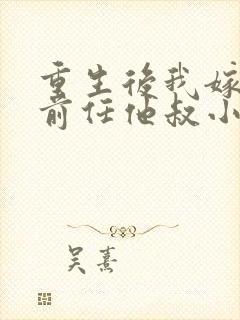 重生後我嫁
前任他叔小
吴熹